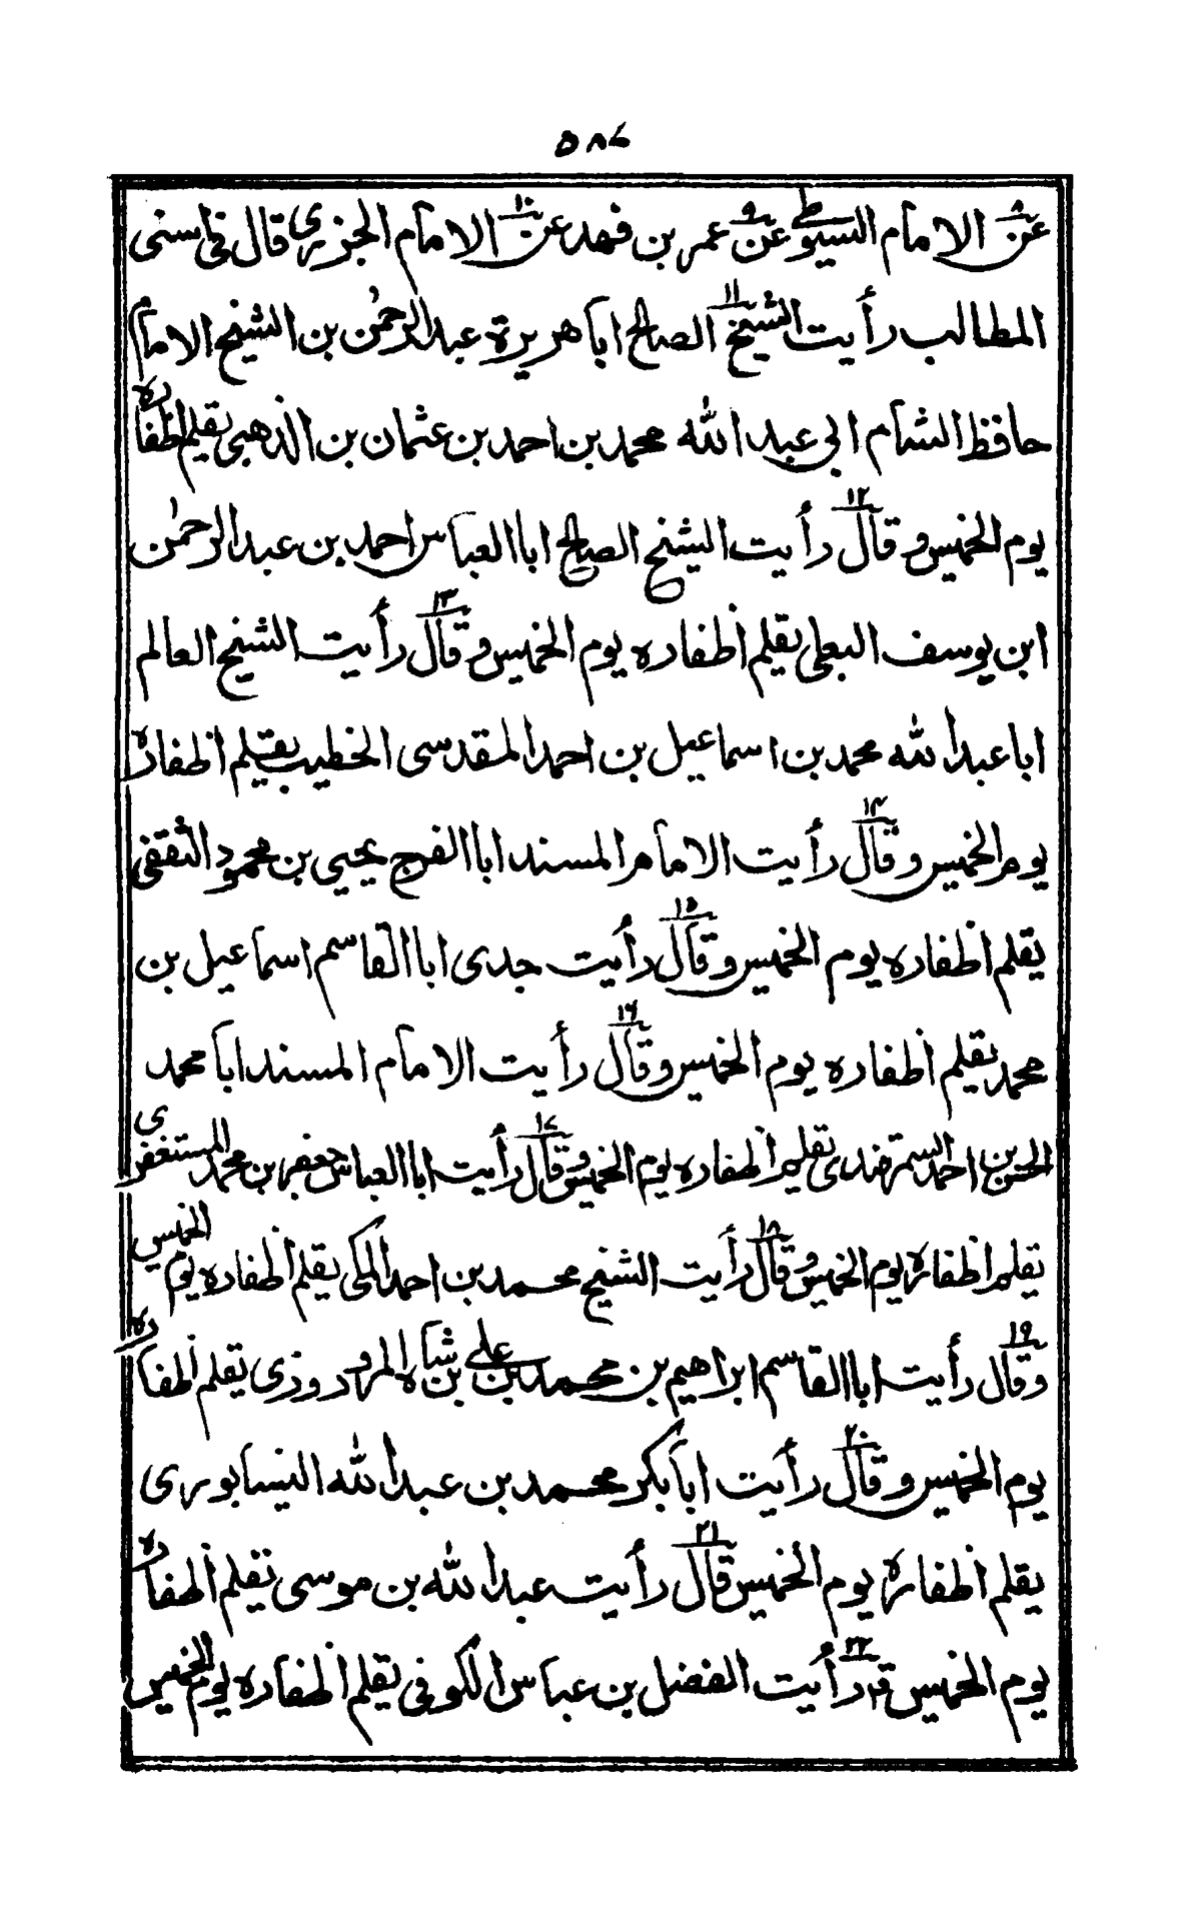 ٥٨٦
عن ٨ الامام السيوطي عن ٩ عمر بن فهد عن ١٠ الامام الجزري قال في اسنى
المطالب رأيت الشيخ ١١ الصالح ابا هريرة عبد الرحمٰن بن الشيخ الامام
حافظ الشام ابي عبد الله محمد بن احمد بن عثمان بن الذهبي يقلم اظفاره
يوم الخميس و قال ١٢ رأيت الشيخ الصالح ابا العباس احمد بن عبد الرحمٰن
ابن يوسف البعلي يقلم اظفاره يوم الخميس و قال ١٣ رأيت الشيخ العالم
ابا عبد الله محمد بن اسماعيل بن احمد المقدسي الخطيب يقلم اظفاره
يوم الخميس و قال ١٤ رأيت الامام المسند ابا الفرج يحيى بن محمود الثقفي
يقلم اظفاره يوم الخميس و قال ١٥ رأيت جدى ابا القاسم اسماعيل بن
محمد يقلم اظفاره يوم الخميس و قال ١٦ رأيت الامام المسند ابا محمد
الحسن بن احمد السمرقندى يقلم اظفاره يوم الخميس و قال ١٧ رأيت ابا العباس جعفر بن محمد المستغفرى
يقلم اظفاره يوم الخميس و قال ١٨ رأيت الشيخ محمد بن احمد المكى يقلم اظفاره يوم الخميس
و قال ١٩ رأيت ابا القاسم ابراهيم بن محمد بن علي بن شاه المروروذى يقلم اظفاره
يوم الخميس و قال ٢٠ رأيت ابا بكر محمد بن عبد الله النيسابورى
يقلم اظفاره يوم الخميس قال ٢١ رأيت عبد الله بن موسى يقلم اظفاره
يوم الخميس ق ٢٢ رأيت الفضل بن عباس الكوفى يقلم اظفاره يوم الخميس